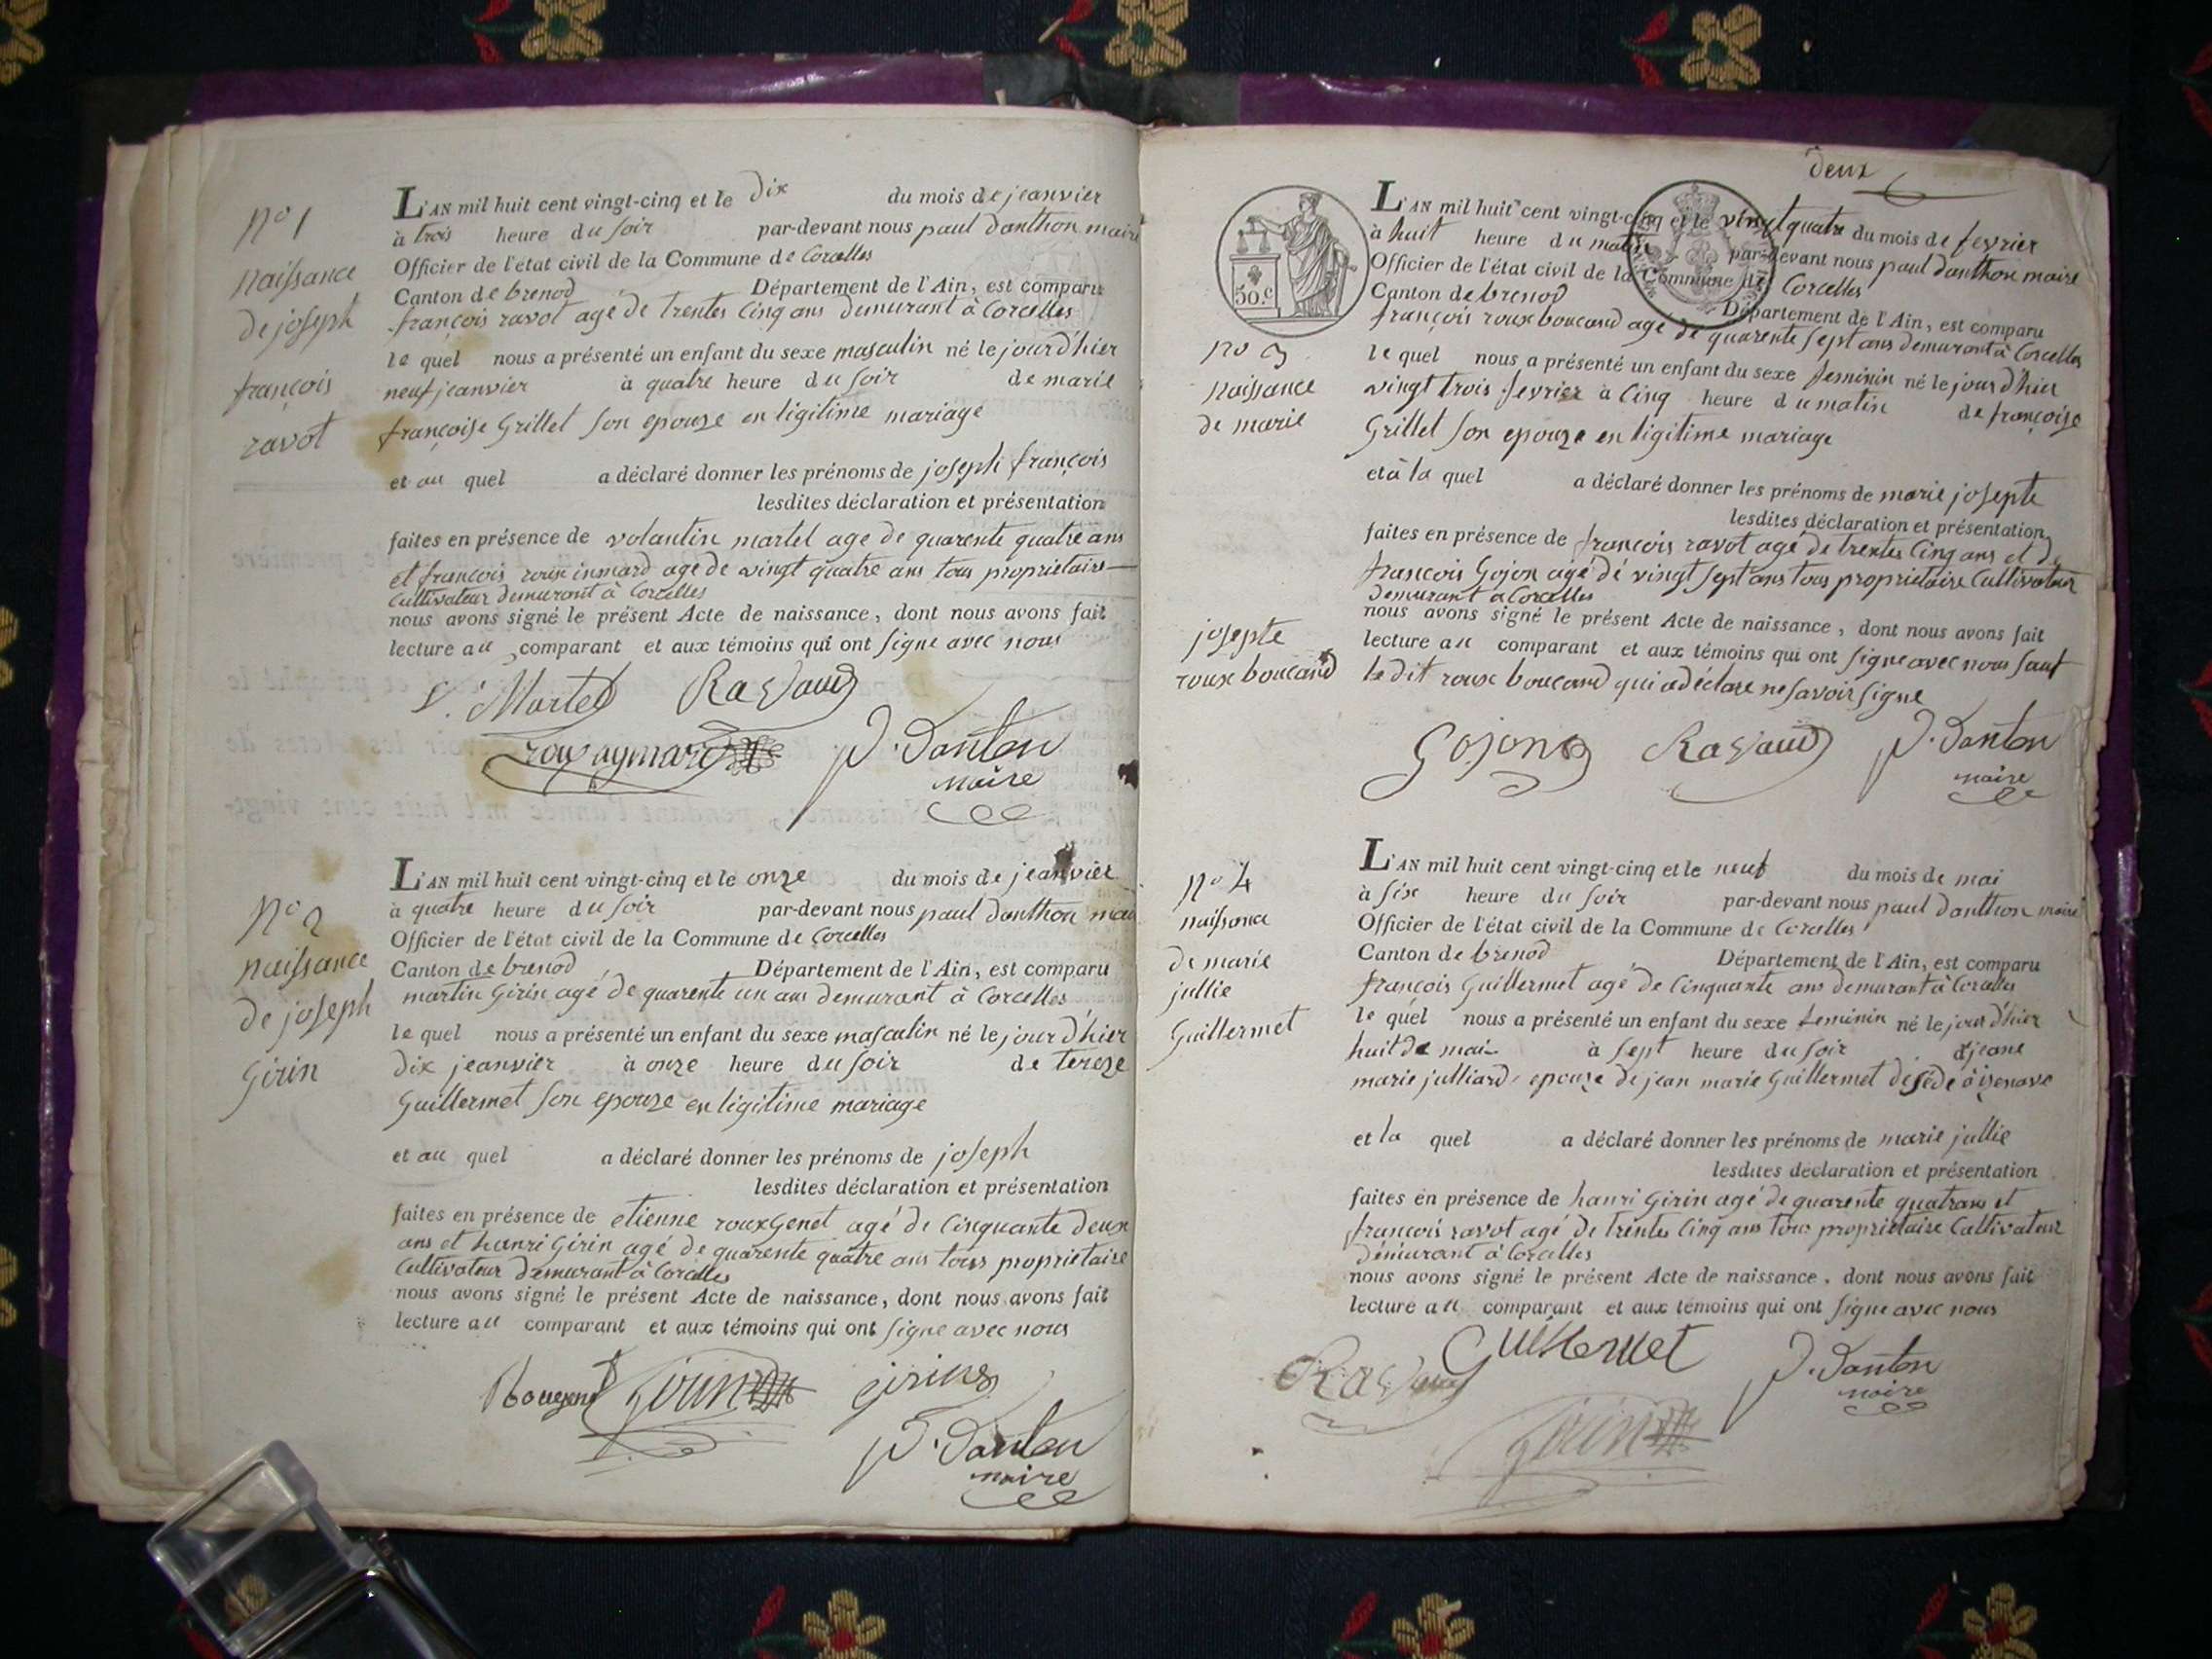 n° 1
naissance
de joseph
françois
ravot
L'AN mil huit cent vingt-cinq et le dix du mois de jeanvier
à trois heure du soir par-devant nous paul danthon maire
Officier de l'état civil de la Commune de Corcelles
Canton de brenod Département de l'Ain, est comparu
françois ravot agé de trentes Cinq ans demurant à Corcelles
le quel nous a présenté un enfant du sexe masculin né le jour d'hier
neuf jeanvier à quatre heure du soir de marie
françoise Grillet son epouze en ligitime mariage
et au quel a déclaré donner les prénoms de joseph françois
lesdites déclaration et présentation
faites en présence de volantin martel age de quarente quatre ans
et françois roux inmard age de vingt quatre ans tous propriétaire
Cultivateur demurant à Corcelles
nous avons signé le présent Acte de naissance, dont nous avons fait
lecture au comparant et aux témoins qui ont signe avec nous
V. Martel Ravaud
rouxaymard P. Danton
maire
n° 2
naissance
de joseph
Girin
L'AN mil huit cent vingt-cinq et le onze du mois de jeanvier
à quatre heure du soir par-devant nous paul danthon
Officier de l'état civil de la Commune de Corcelles
Canton de brenod Département de l'Ain, est comparu
martin Girin agé de quarente un ans demurant à Corcelles
le quel nous a présenté un enfant du sexe masculin né le jour d'hier
dix jeanvier à onze heure du soir de tereze
Guillermet son epouze en ligitime mariage
et au quel a déclaré donner les prénoms de joseph
lesdites déclaration et présentation
faites en présence de etienne rouxGenet agé de Cinquante deux
ans et hanri Girin agé de quarente quatre ans tous propriétaire
Cultivateur demurant à Corcelles
nous avons signé le présent Acte de naissance, dont nous avons fait
lecture au comparant et aux témoins qui ont signe avec nous
Girin girin
P. Danton
maire
deux
50.c
n° 3
naissance
de marie
josepte
roux boucand
L'AN mil huit cent vingt-cinq et le vingt quatre du mois de fevrier
à huit heure du matin par-devant nous paul danthon maire
Officier de l'état civil de la Commune de Corcelles
Canton de brenod Département de l'Ain, est comparu
françois roux boucand agé de quarente sept ans demurant à Corcelles
le quel nous a présenté un enfant du sexe feminin né le jour d'hier
vingt trois fevrier à Cinq heure du matin de françoise
Grillet son epouze en ligitime mariage
et à la quel a déclaré donner les prénoms de marie josepte
lesdites déclaration et présentation
faites en présence de francois ravot agé de trentes Cinq ans et de
françois Gojon agé de vingt sept ans tous propriétaire Cultivateur
demurant à Corcelles
nous avons signé le présent Acte de naissance, dont nous avons fait
lecture au comparant et aux témoins qui ont signe avec nous sauf
le dit roux boucand qui a déclare ne savoir signe
Gojon Ravaud P. Danton
maire
n° 4
naissance
de marie
jullie
Guillermet
L'AN mil huit cent vingt-cinq et le neuf du mois de mai
à six heure du soir par-devant nous paul danthon maire
Officier de l'état civil de la Commune de Corcelles
Canton de brenod Département de l'Ain, est comparu
françois Guillermet agé de Cinquante ans demurant à Corcelles
le quel nous a présenté un enfant du sexe feminin né le jour d'hier
huit de mai à sept heure du soir d'jeane
marie julliard epouze de jean marie Guillermet desédé à izenave
et la quel a déclaré donner les prénoms de marie jullie
lesdites déclaration et présentation
faites en présence de hanri Girin agé de quarente quatrans et
françois ravot agé de trentes Cinq ans tous propriétaire Cultivateur
demurant à Corcelles
nous avons signé le présent Acte de naissance, dont nous avons fait
lecture au comparant et aux témoins qui ont signe avec nous
Ravaud Guillermet P. Danton
maire
Girin